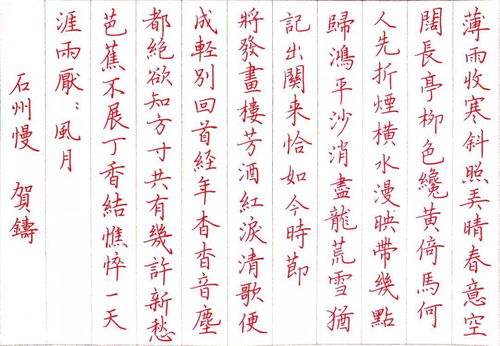 薄雨收寒斜照弄晴春意空
闊長亭柳色纔黃倚馬何
人先折煙橫水漫映帶幾點
歸鴻平沙消盡龍荒雪猶
記出關来恰如今時節
將發畫樓芳酒紅淚清歌便
成輕別回首経年杳杳音塵
都絕欲知方寸共有幾許新愁
芭蕉不展丁香結憔悴一天
涯雨厭〻風月
石州慢 賀鑄